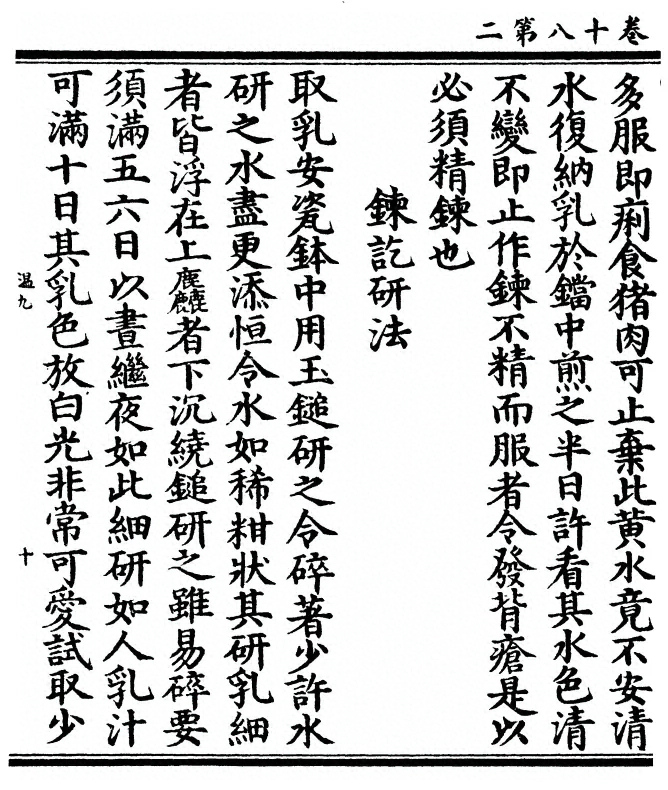 卷十八第二
多服即痢食猪肉可止棄此黄水竟不安清
水復納乳於鐺中煎之半日許看其水色清
不變即止作鍊不精而服者令發背瘡是以
必須精鍊也
鍊訖研法
取乳安瓷鉢中用玉鎚研之令碎著少許水
研之水盡更添恒令水如稀粓狀其研乳細
者皆浮在上麤者下沉繞鎚研之雖易碎要
須滿五六日以晝繼夜如此細研如人乳汁
可滿十日其乳色放白光非常可愛試取少
温九
十